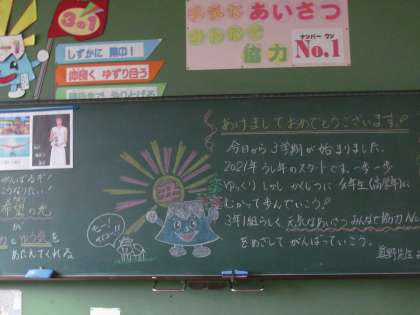 3の1
しずかに 集中!
仲良く ゆずり合ろ
元気な あいさつ
みんなで 協力
ナンバー ワン
No.1
がんばるぞ!
こうなりたい…!
希望の光
が
あたえてくれる
あけましておめでとうございます。
今日から3学期が始まりました。
2021年うし年のスタートです。一歩一歩
ゆっくり しかし かくじつに 4年生(高学年)に
むかって歩んでいこう。
3年1組らしく 元気なあいさつ みんなで協力No.1
をめざして がんばっていこう。